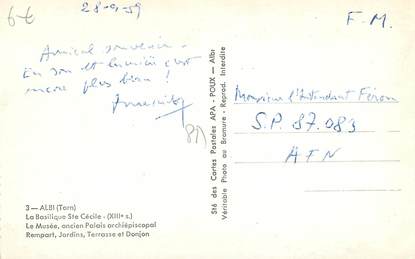 6€
28-9-59
F.M.
Amical souvenir.
En son et lumière c'est
encore plus beau !
81
Monsieur l'Intendant Féron
S.P. 87.083
AFN
Sté des Cartes Postales APA - POUX - Albi
Véritable Photo au Bromure - Reprod. Interdite
3 — ALBI (Tarn)
La Basilique Ste Cécile - (XIIIe s.)
Le Musée, ancien Palais archiépiscopal
Rempart, Jardins, Terrasse et Donjon